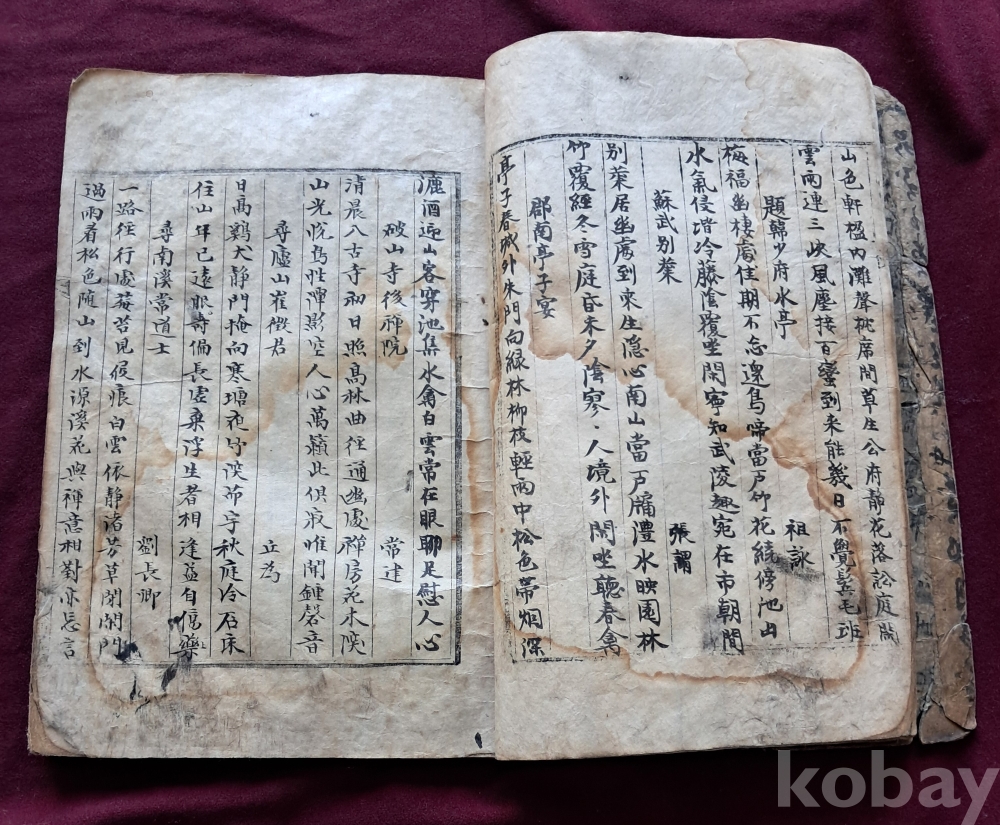 山色軒楹內灘聲枕席間草生公府靜花落訟庭閑
雲雨連三峽風塵接百蠻到來能幾日不覺鬂毛班
題韓少府水亭
祖詠
梅福幽棲處佳期不忘還鳥啼當戶竹花繞傍池山
水氣侵堦冷藤陰覆坐閑寧知武陵趣宛在市朝間
蘇武別業
張謂
別業居幽處到來生隱心南山當戶牖灃水映園林
竹覆經冬雪庭昏未夕陰寥〻人境外閑坐聽春禽
郡南亭子宴
亭子春城外朱門向綠林柳枝輕雨中松色帶烟深
漉酒迎山客穿池集水禽白雲常在眼聊足慰人心
破山寺後禪院
常建
清晨入古寺初日照高林曲徑通幽處禪房花木深
山光悅鳥性潭影空人心萬籟此俱寂惟聞鍾磬音
尋廬山崔徵君
立為
日高鷄犬靜門掩向寒塘夜竹深茅宇秋庭冷石床
住山年已遠服壽偏長虛棄浮生者相逢益自傷
尋南溪常道士
劉長卿
一路徑行處莓苔見屐痕白雲依靜渚芳草閉閑門
過雨看松色随山到水源溪花與禪意相對亦忘言
kobay